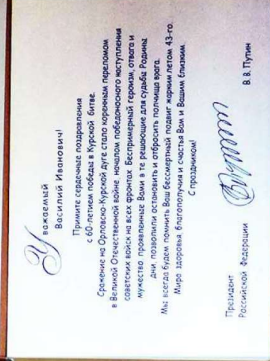 Уважаемый
Василий Иванович!
Примите сердечные поздравления
с 60-летием победы в Курской битве.
Сражение на Орловско-Курской дуге стало коренным переломом
в Великой Отечественной войне, началом победоносного наступления
советских войск на всех фронтах. Беспримерный героизм, отвага и
мужество проявленные Вами в те решающие для судьбы Родины
дни, позволили остановить и отбросить полчища врага.
Мы всегда будем помнить Ваш бессмертный подвиг жарким летом 43-го.
Мира здоровья, благополучия и счастья Вам и Вашим близким.
С праздником!
Президент
Российской Федерации
В.В. Путин